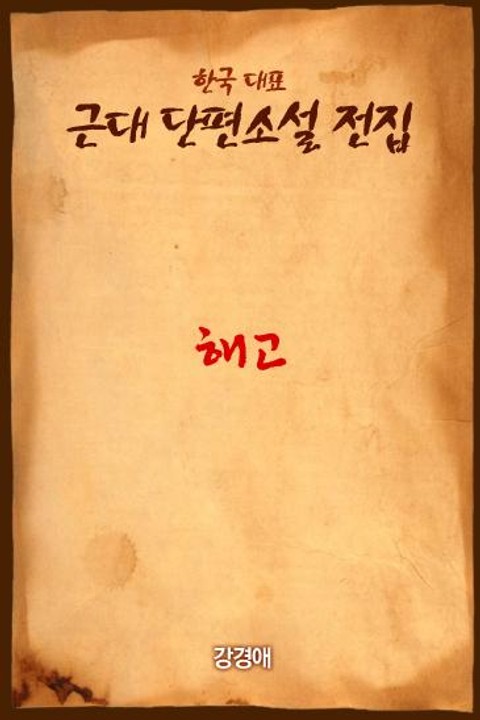 한국 대표
근대 단편소설 전집
해고
강경애